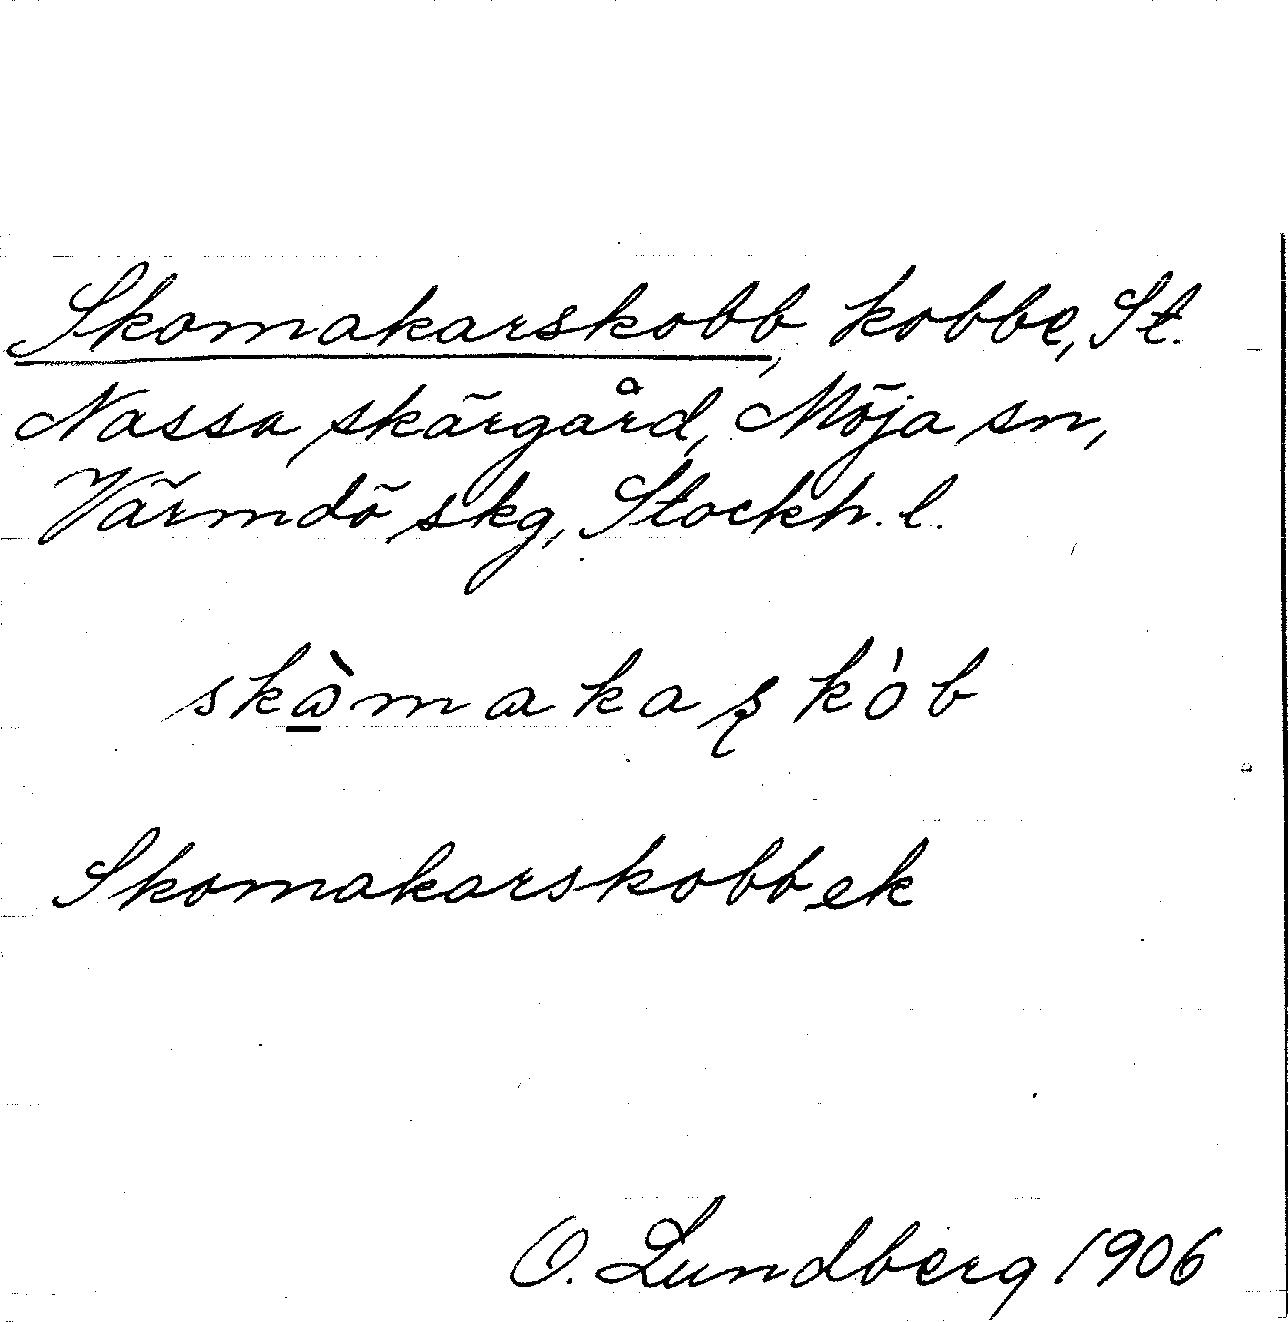 Skomakarskobb, kobbe, St.
Nassa skärgård, Möja sn,
Värmdö skg, Stockh. l.
skɷ̀makaʂkób
Skomakarskobbek
O. Lundberg 1906